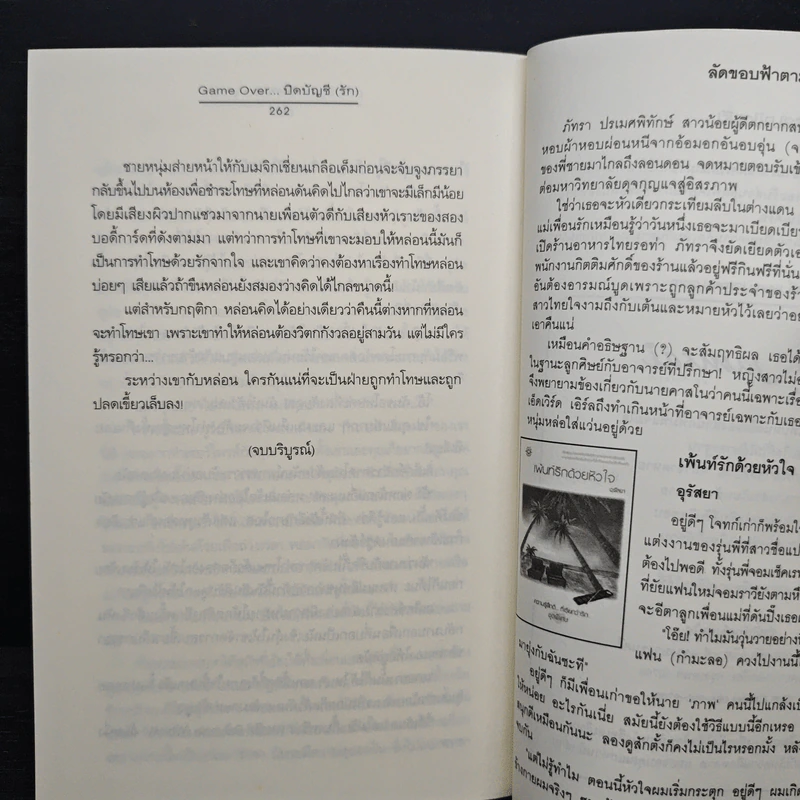 Game Over... ปิดบัญชี (รัก)
262
ชายหนุ่มส่ายหน้าให้กับเมจิกเชี่ยนเกลือเค็มก่อนจะจับจูงภรรยา
กลับขึ้นไปบนห้องเพื่อชำระโทษที่หล่อนดันคิดไปไกลว่าเขาจะมีเล็กมีน้อย
โดยมีเสียงผิวปากแซวมาจากนายเพื่อนตัวดีกับเสียงหัวเราะของสอง
บอดี้การ์ดที่ดังตามมา แต่ทว่าการทำโทษที่เขาจะมอบให้หล่อนนี้มันก็
เป็นการทำโทษด้วยรักจากใจ และเขาคิดว่าคงต้องหาเรื่องทำโทษหล่อน
บ่อยๆ เสียแล้วถ้าขืนหล่อนยังสมองว่างคิดได้ไกลขนาดนี้!
แต่สำหรับกฤติกา หล่อนคิดได้อย่างเดียวว่าคืนนี้ต่างหากที่หล่อน
จะทำโทษเขา เพราะเขาทำให้หล่อนต้องวิตกกังวลอยู่สามวัน แต่ไม่มีใคร
รู้หรอกว่า...
ระหว่างเขากับหล่อน ใครกันแน่ที่จะเป็นฝ่ายถูกทำโทษและถูก
ปลดเขี้ยวเล็บลง!
(จบบริบูรณ์)
ลัดขอบฟ้าตาม
ภัทรา ปรเมศพิทักษ์ สาวน้อยผู้ดีตกยากสบ
หอบผ้าหอบผ่อนหนีจากอ้อมอกอันอบอุ่น (จ
ของพี่ชายมาไกลถึงลอนดอน จดหมายตอบรับเข้
ต่อมหาวิทยาลัยดุจกุญแจสู่อิสรภาพ
ใช่ว่าเธอจะหัวเดียวกระเทียมลีบในต่างแดน
แม่เพื่อนรักเหมือนรู้ว่าวันหนึ่งเธอจะมาเบียดเบีย
เปิดร้านอาหารไทยรอท่า ภัทราจึงยัดเยียดตัวเอ
พนักงานกิตติมศักดิ์ของร้านแล้วอยู่ฟรีกินฟรีที่นั่น
อันต้องอารมณ์บูดเพราะถูกลูกค้าประจำของร้า
สาวไทยใจงามถึงกับเต้นและหมายหัวไว้เลยว่าอย
เอาคืนแน่
เหมือนคำอธิษฐาน (?) จะสัมฤทธิผล เธอได้
ในฐานะลูกศิษย์กับอาจารย์ที่ปรึกษา! หญิงสาวไม่อ
จึงพยายามข้องเกี่ยวกับนายคาสโนว่าคนนี้เฉพาะเรื่อ
เอ็ดเวิร์ด เอิร์ลถึงทำเกินหน้าที่อาจารย์เฉพาะกับเธอ
หนุ่มหล่อใส่แว่นอยู่ด้วย
เพ้นท์รักด้วยหัวใจ
อุรัสยา
เพ้นท์รักด้วยหัวใจ
อุรัสยา
อยู่ดีๆ โจทก์เก่าก็พร้อมใ
แต่งงานของรุ่นพี่ที่สาวชื่อแป
ต้องไปพอดี ทั้งรุ่นพี่จอมเช็คเร
ที่ยัยแฟนใหม่จอมราวียังตามหึ
จะอีตาลูกเพื่อนแม่ที่ดันปิ๊งเธอ
"โอ๊ย! ทำไมมันวุ่นวายอย่างนี
แฟน (กำมะลอ) ควงไปงานนี้
มายุ่งกับฉันซะที"
อยู่ดีๆ ก็มีเพื่อนเก่าขอให้นาย 'ภาพ' คนนี้ไปแกล้งเป็
ให้หน่อย อะไรกันเนี่ย สมัยนี้ยังต้องใช้วิธีแบบนี้อีกเหรอ
สนุกดีเหมือนกันนะ ลองดูสักตั้งก็คงไม่เป็นไรหรอกมั้ง หลัง
จบกัน
"แต่ไม่รู้ทำไม ตอนนี้หัวใจผมเริ่มกระตุก อยู่ดีๆ ผมเกิด